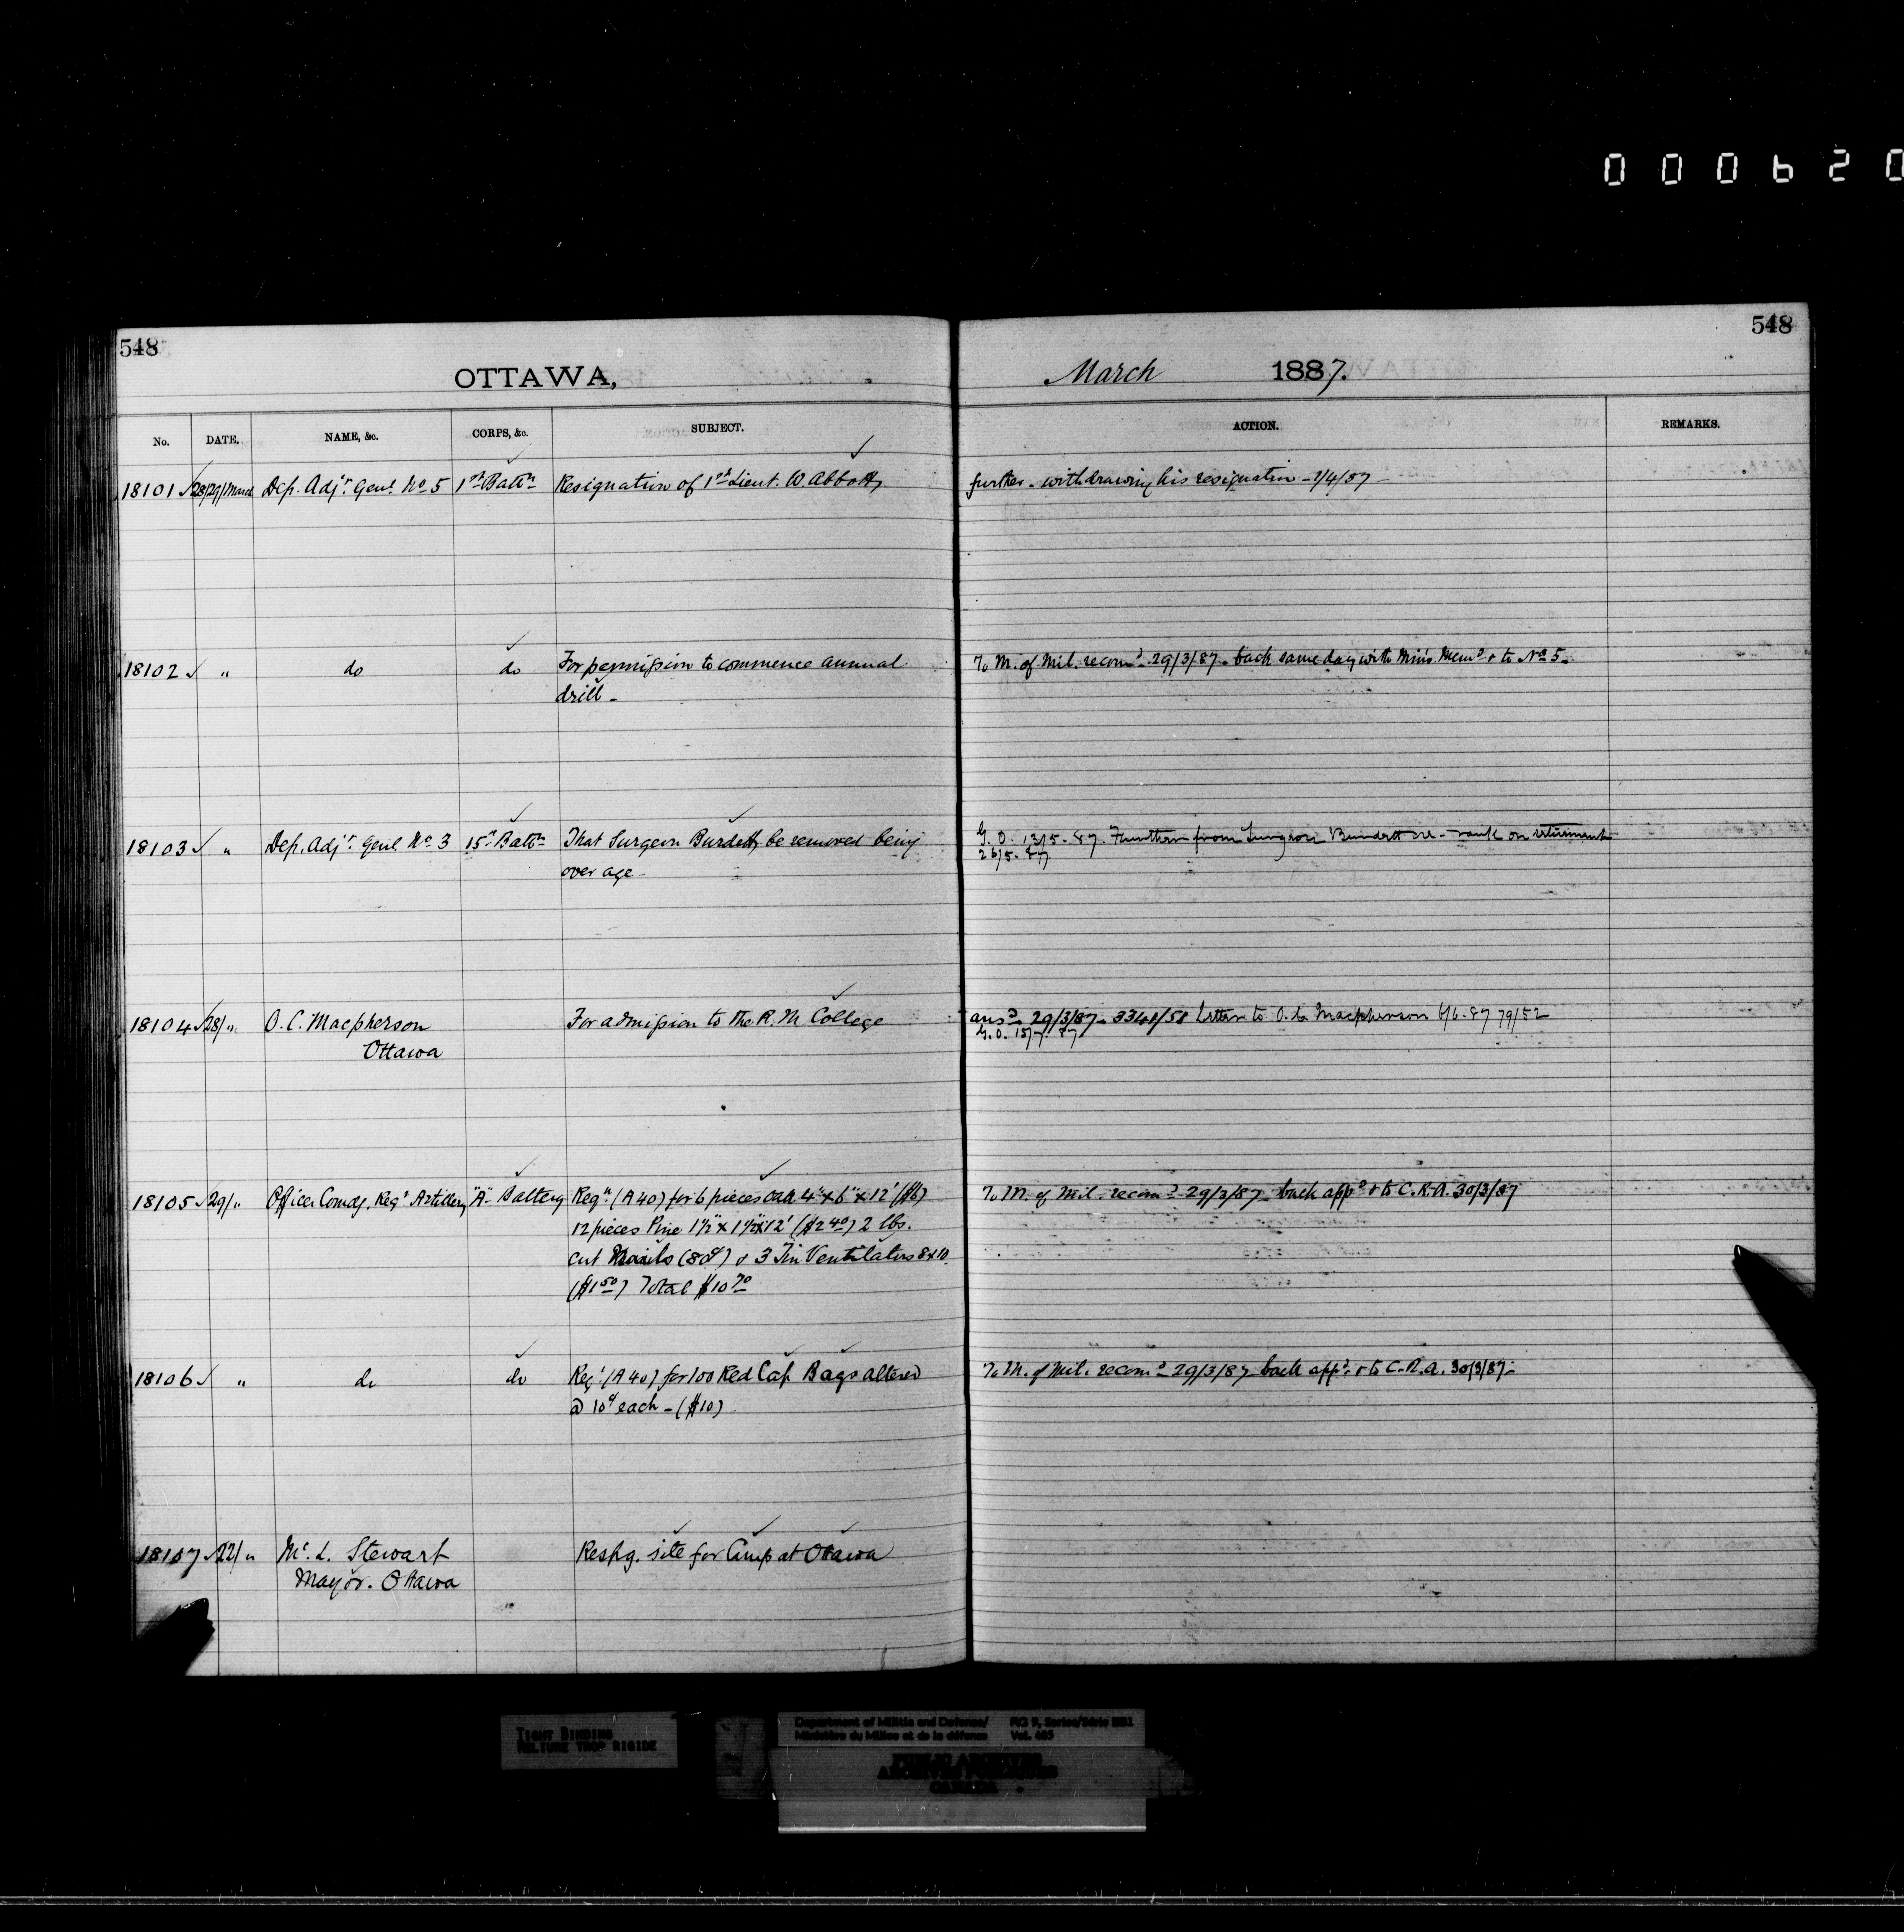 000620
548
548
OTTAWA,
March 1887.
No. DATE. NAME, &c. CORPS, &c. SUBJECT. ACTION. REMARKS.
18101 28/29/March Dep. Adjt. Genl. No 5 1st Battn Resignation of 1st Lieut. W. Abbott, further. withdrawing his resignation - 1/4/87
18102 " do do For permission to commence annual To M. of Mil. recomd. 29/3/87. back same day with Min's. Memo & to No 5.
drill -
18103 " Dep. Adjt. Genl. No 3 15th Battn That Surgeon Burdett, be removed being G. O. 13/5-87. Further from Surgeon Burdett re-rank on retirement
over age 26/5-87
18104 28/" O. C. Macpherson For admission to the R. M College ansd. 29/3/87 - 3348/58 Letter to O. C. Macpherson 6/6-87 79/52
Ottawa G. O. 15/7-87
18105 29/" Officer Comdg. Regt Artillery "A" Battery Reqn (A 40) for 6 pieces oak 4" x 6" x 12' ($6) To M. of Mil. recomd 29/3/87 - back appd & to C.R.A. 30/3/87
12 pieces Pine 1½" x 1½" x 12' ($2 40) 2 lbs.
cut Nails (8d) & 3 Tin Ventilators 8x10.
($1 50) Total $10 70
18106 " do do Reqn (A 40) for 100 Red Cap Bags altered To M. of Mil. recomd 29/3/87 back appd. & to C.R.A. 30/3/87.
@ 10d each - ($10)
18107 22/" Mc. L. Stewart Respg. site for Camp at Ottawa
Mayor. Ottawa
TIGHT BINDING
RELIURE TROP RIGIDE
Department of Militia and Defence/ RG 9, Series/Série IIB1
Ministère du Milice et de la défense Vol. 465
PUBLIC ARCHIVES
ARCHIVES PUBLIQUES
CANADA